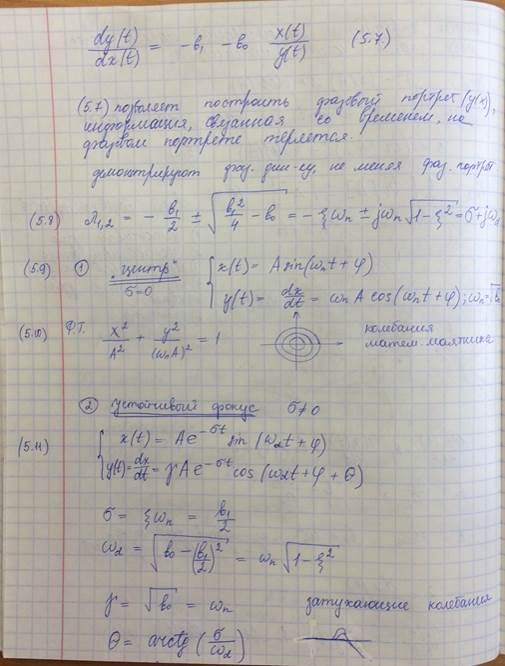 dy(t)/dx(t) = -b₁ - b₀ x(t)/y(t) (5.7.)
(5.7) позволяет построить фазовый портрет (y(x)),
информация, связанная со временем, на
фазовом портрете теряется.
демонстрируют фаз. фаз. портрет не меняя
(5.8) λ₁,₂ = - b₁/2 ± √(b₁²/4 - b₀) = -ξωₙ ± jωₙ√(1-ξ²) = σ+jω_d
(5.9) ① "центр" σ=0 { x(t) = A sin(ωₙt + φ)
y(t) = dx/dt = ωₙ A cos(ωₙt + φ); ωₙ=√b₀
(5.10) Ф.Т. x²/A² + y²/(ωₙA)² = 1 колебания
матем. маятника
② устойчивый фокус σ≠0
(5.11) { x(t) = Ae^(-σt) sin(ω_d t + φ)
y(t) = dx/dt = γAe^(-σt) cos(ω_d t + φ + θ)
σ = ξωₙ = b₁/2
ω_d = √(b₀ - (b₁/2)²) = ωₙ√(1-ξ²)
γ = √b₀ = ωₙ затухающие колебания
θ = arctg(σ/ω_d)